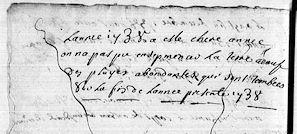 Lannee 1738 a esté chere annee
on na pas pu ensemencer la terre a cause
des pluyes abondantes qui sont tombees
sur la fin de Lannee presente 1738